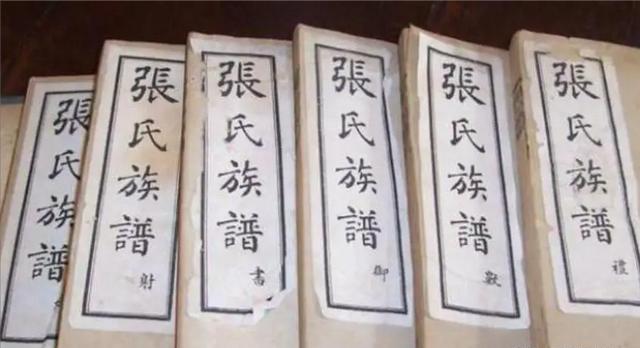 張氏族譜 禮
張氏族譜 數
張氏族譜 御
張氏族譜 書
張氏族譜 射
張氏族譜